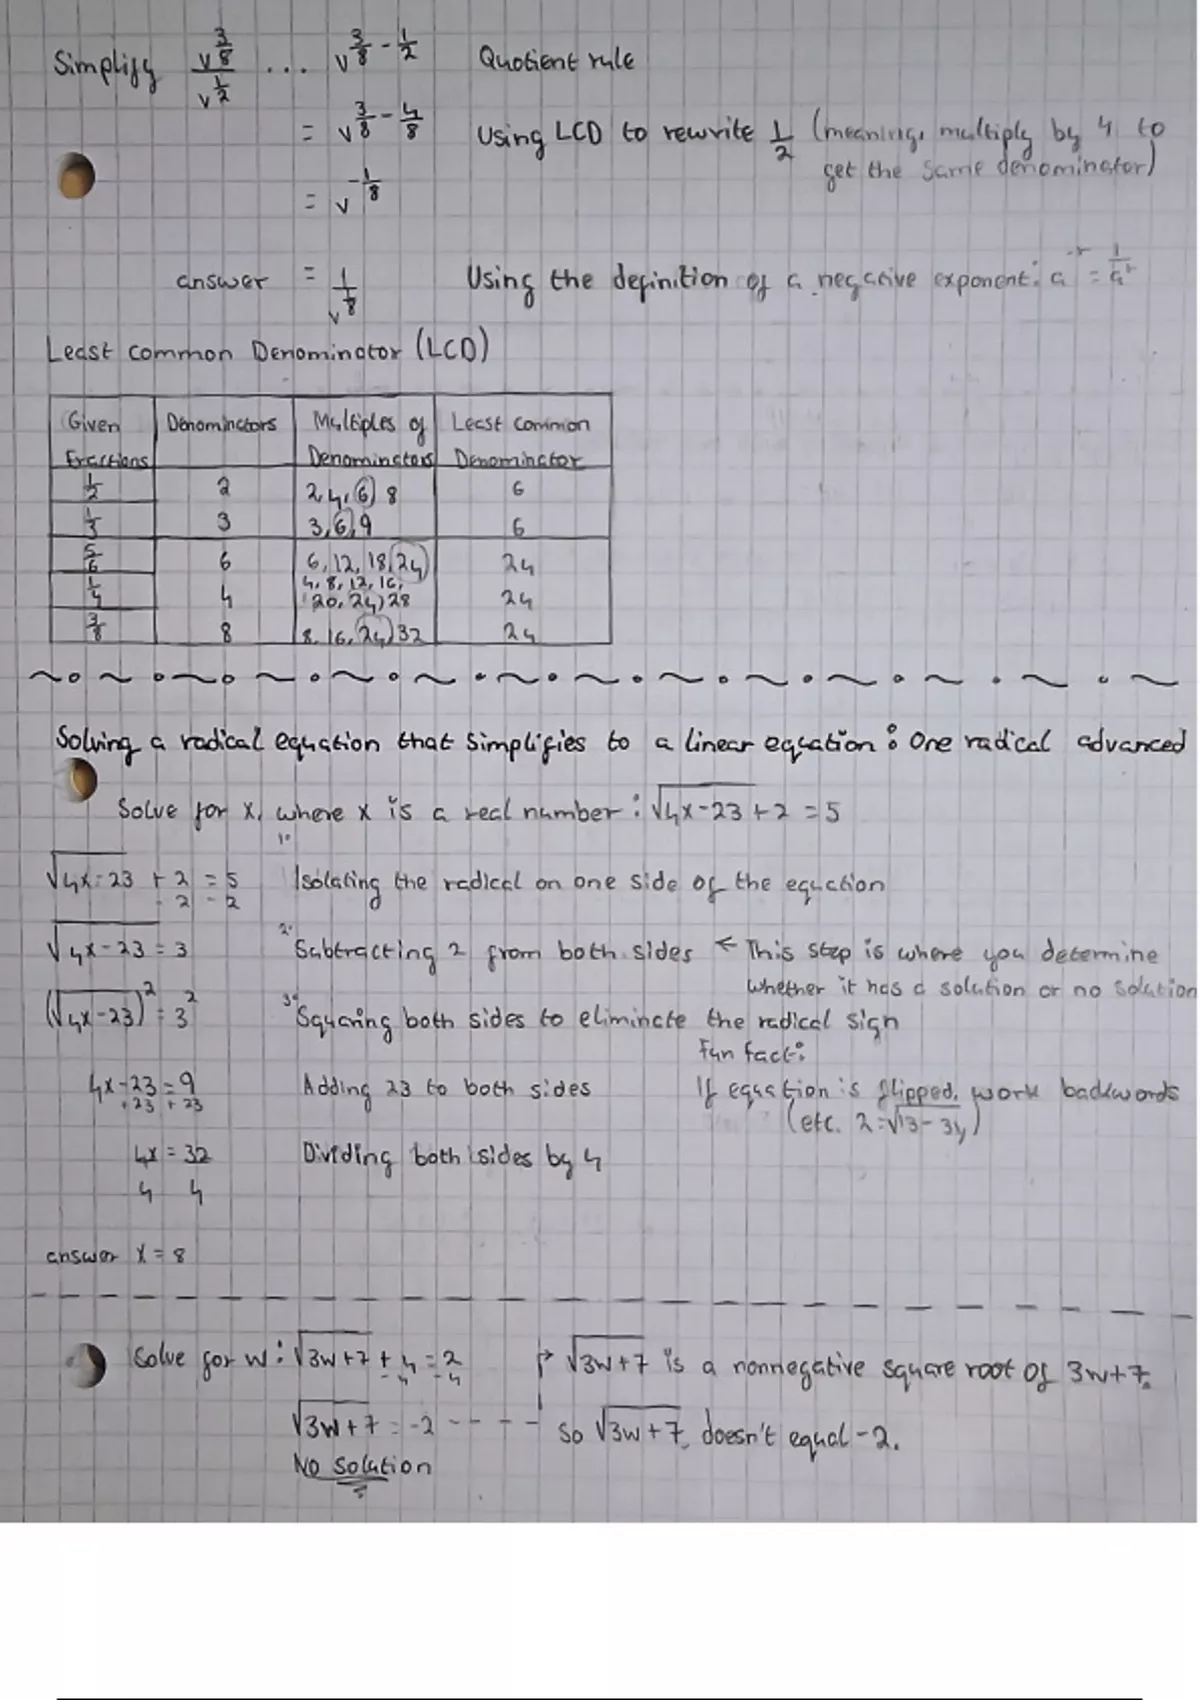 Simplify v^(3/8) / v^(1/2) ... v^(3/8 - 1/2) Quotient rule
= v^(3/8 - 4/8) Using LCD to rewrite 1/2 (meaning, multiply by 4 to
get the same denominator)
= v^(-1/8)
answer = 1/v^(1/8) Using the definition of a negative exponent: a^-r = 1/a^r
Least common Denominator (LCD)
Given Denominators Multiples of Least common
Fractions Denominators Denominator
1/2 2 2, 4, (6) 8 6
1/3 3 3, (6), 9 6
5/6 6 6, 12, 18, (24) 24
1/4 4 4, 8, 12, 16,
20, 24) 28 24
3/8 8 8, 16, (24) 32 24
Solving a radical equation that simplifies to a linear equation: One radical advanced
Solve for x, where x is a real number: √(4x-23) + 2 = 5
1.
√(4x-23) + 2 = 5 Isolating the radical on one side of the equation
- 2 - 2
√(4x-23) = 3 2. Subtracting 2 from both sides ← This step is where you determine
whether it has a solution or no solution
(√(4x-23))² = 3² 3. Squaring both sides to eliminate the radical sign
Fun fact:
4x-23 = 9 Adding 23 to both sides If equation is flipped, work backwords
+23 +23 (etc. 2=√(13-3y))
4x = 32 Dividing both sides by 4
4 4
answer x = 8
Solve for w: √(3w+7) + 4 = 2 √(3w+7) is a nonnegative square root of 3w+7.
-4 -4
√(3w+7) = -2 - - - - So √(3w+7), doesn't equal -2.
No solution